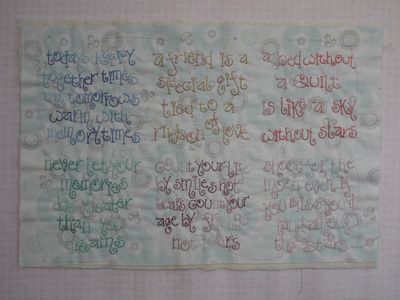 todays happy
together times
are tomorrows
warm with
memory times
a friend is a
special gift
tied to a
ribbon of love
a bed without
a quilt
is like a sky
without stars
never let your
memories
be greater
than your
dreams
count your life
by smiles not
tears count your
age by friends
not years
shoot for the
moon even if
you miss you'll
land among
the stars